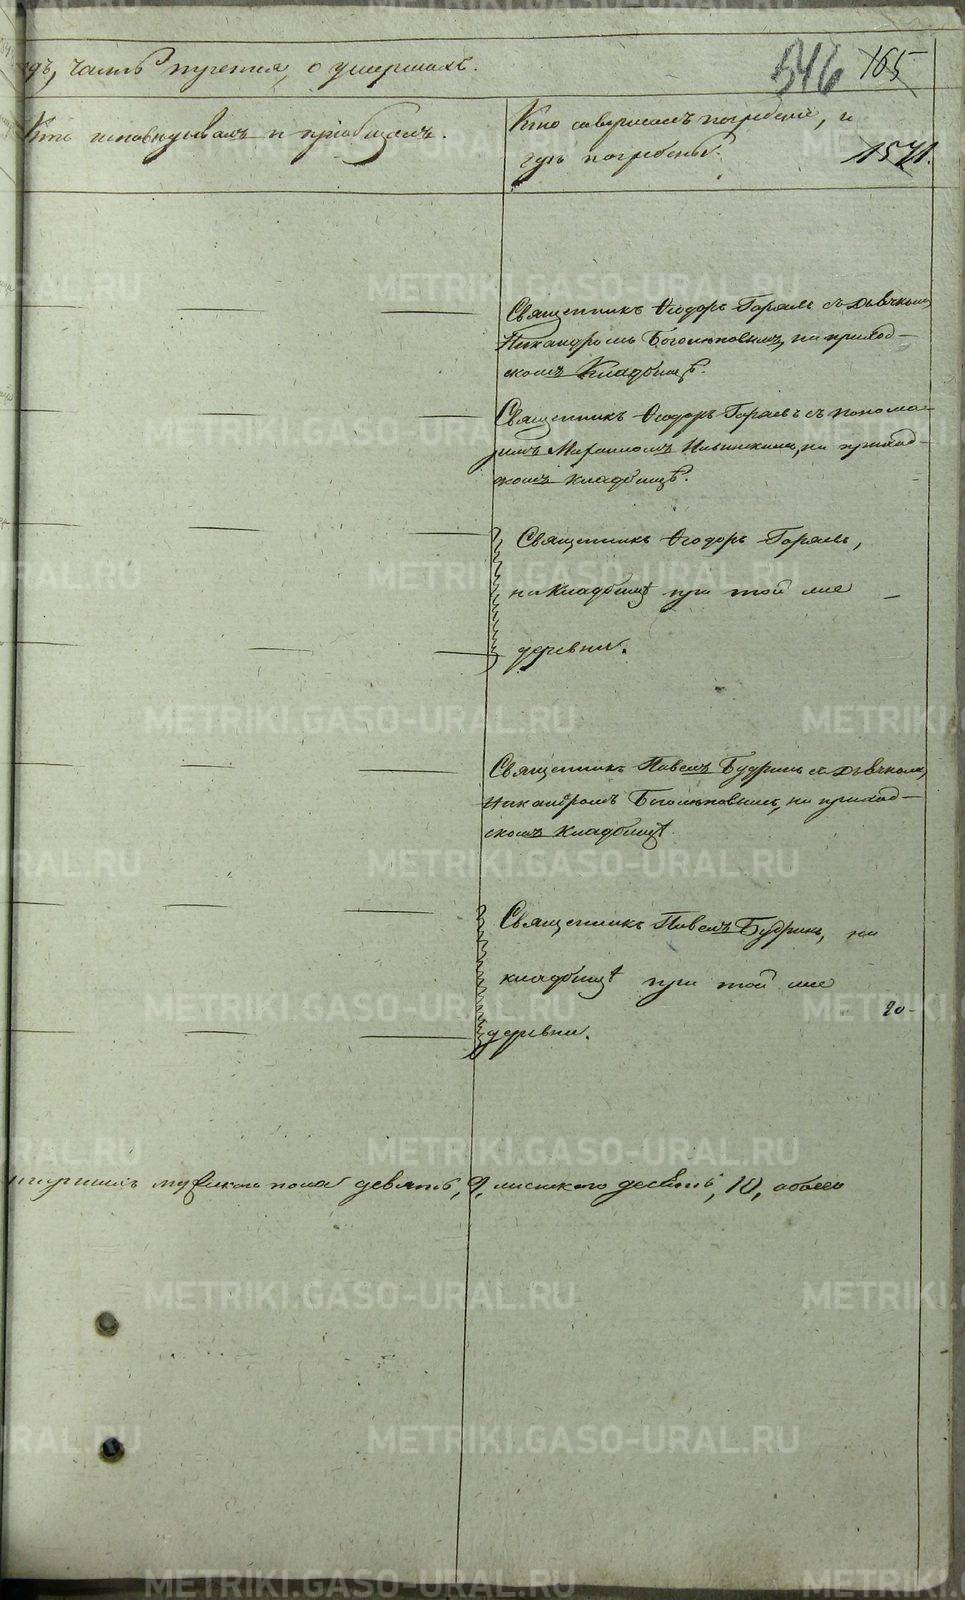 годъ, часть третія, о умершихъ.
546
165
Кто исповѣдывалъ и пріобщалъ.
Кто совершалъ погребеніе, и
гдѣ погребены.
1571.
Священникъ Ѳеодоръ Горяевъ съ дьячкомъ
Никандромъ Боголѣповымъ, на приход-
скомъ кладбищѣ.
Священникъ Ѳеодоръ Горяевъ съ понома-
ремъ, на приход-
скомъ кладбищѣ.
Священникъ Ѳеодоръ Горяевъ,
на кладбищѣ при той же
деревни.
Священникъ Павелъ Будринъ съ дьячкомъ
Никандромъ Боголѣповымъ, на приход-
скомъ кладбищѣ.
Священникъ Павелъ Будринъ, на
кладбищѣ при той же
20
деревни.
мужеска пола девять, 9, женскаго десять, 10, обоего
METRIKI.GASO-URAL.RU